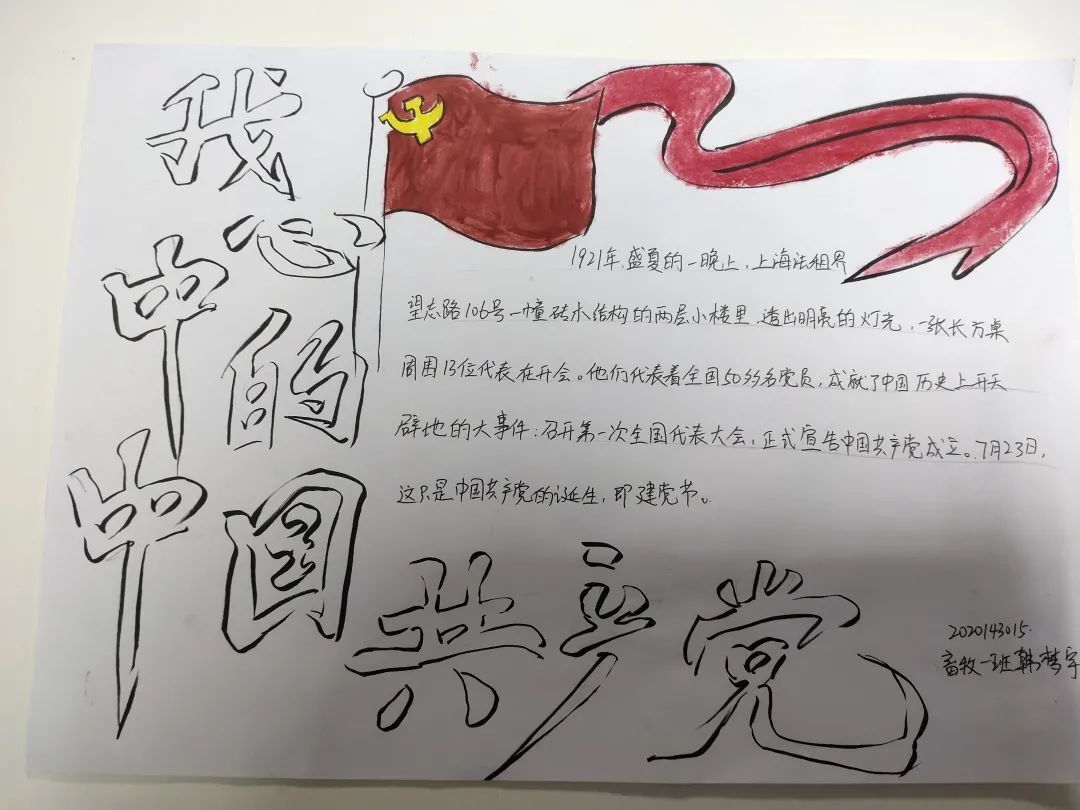 我心中的
中国共产党
1921年,盛夏的一晚上,上海法租界
望志路106号一幢砖木结构的两层小楼里,透出明亮的灯光,一张长方桌
周围13位代表在开会。他们代表着全国50多名党员,成就了中国历史上开天
辟地的大事件:召开第一次全国代表大会,正式宣告中国共产党成立。7月23日,
这只是中国共产党的诞生,即建党节。
2020143015.
畜牧一班韩梦宇